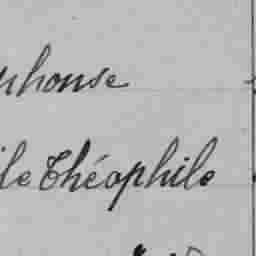 phonse
ile Théophile